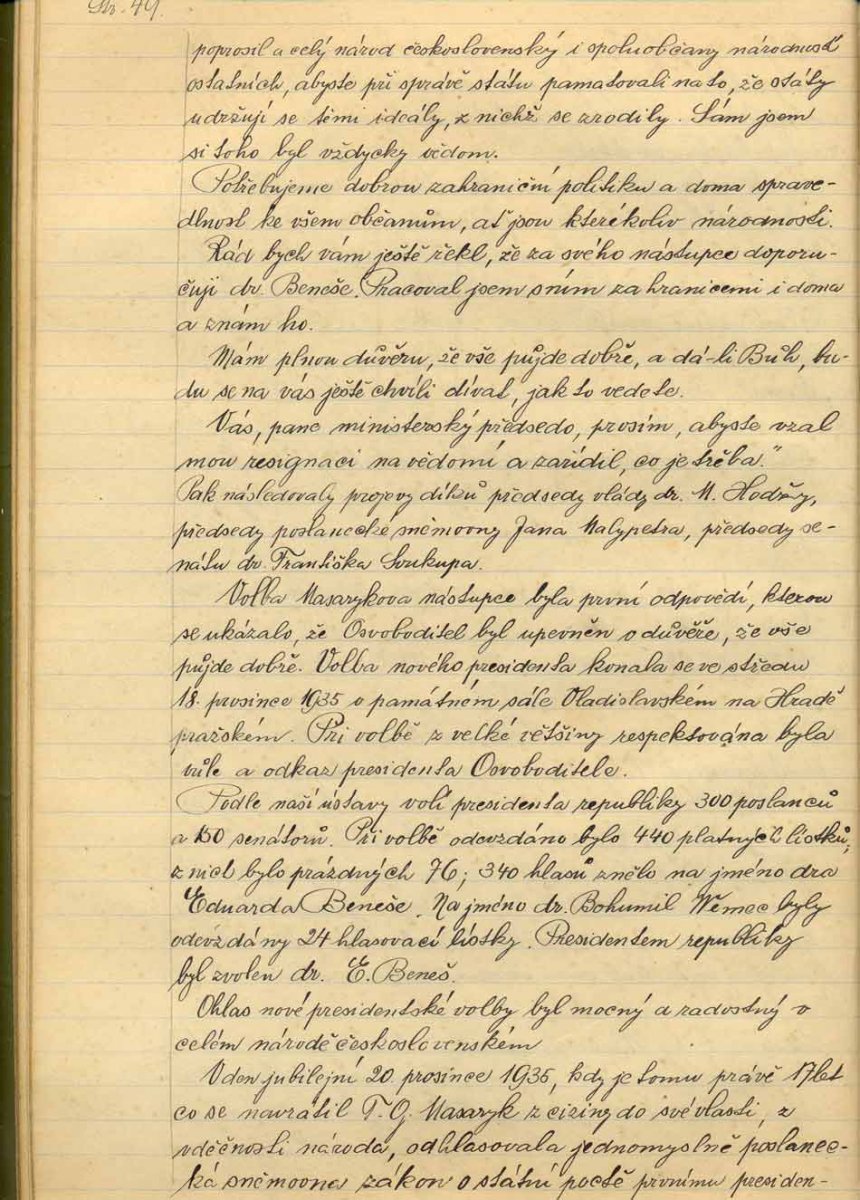 Str. 49.
poprosil a celý národ československý i spoluobčany národností
ostatních, abyste při správě státu pamatovali na to, že státy
udržují se těmi ideály, z nichž se zrodily. Sám jsem
si toho byl vždycky vědom.
Potřebujeme dobrou zahraniční politiku a doma sprave-
dlnost ke všem občanům, ať jsou kterékoliv národnosti.
Rád bych vám ještě řekl, že za svého nástupce doporu-
čuji dr. Beneše. Pracoval jsem s ním za hranicemi i doma
a znám ho.
Mám plnou důvěru, že vše půjde dobře, a dá-li Bůh, bu-
du se na vás ještě chvíli dívat, jak to vedete.
Vás, pane ministerský předsedo, prosím, abyste vzal
mou resignaci na vědomí a zařídil, co je třeba."
Pak následovaly projevy díků předsedy vlády dr. M. Hodžy,
předsedy poslanecké sněmovny Jana Malypetra, předsedy se-
nátu dr. Františka Soukupa.
Volba Masarykova nástupce byla první odpovědí, kterou
se ukázalo, že Osvoboditel byl upevněn v důvěře, že vše
půjde dobře. Volba nového presidenta konala se ve středu
18. prosince 1935 v památném sále Vladislavském na Hradě
pražském. Při volbě z velké většiny respektována byla
vůle a odkaz presidenta Osvoboditele.
Podle naší ústavy volí presidenta republiky 300 poslanců
a 150 senátorů. Při volbě odevzdáno bylo 440 platných lístků,
z nich bylo prázdných 76; 340 hlasů znělo na jméno dra
Eduarda Beneše. Na jméno dr. Bohumil Němec byly
odevzdány 24 hlasovací lístky. Presidentem republiky
byl zvolen dr. E. Beneš.
Ohlas nové presidentské volby byl mocný a radostný v
celém národě československém
V den jubilejní 20. prosince 1935, kdy je tomu právě 17 let
co se navrátil T. G. Masaryk z ciziny do své vlasti, z
vděčnosti národa, odhlasovala jednomyslně poslanec-
ká sněmovna zákon o státní poctě prvnímu presiden-